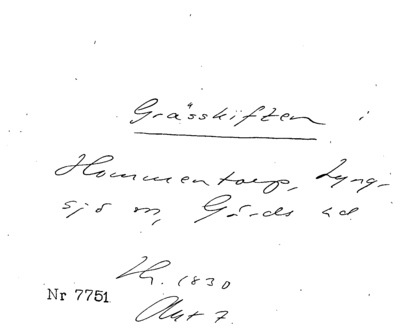 Grässkiften i
Hommentorp, Lyng-
sjö sn, Gärds hd
Th. 1830
Nr 7751
Akt 7